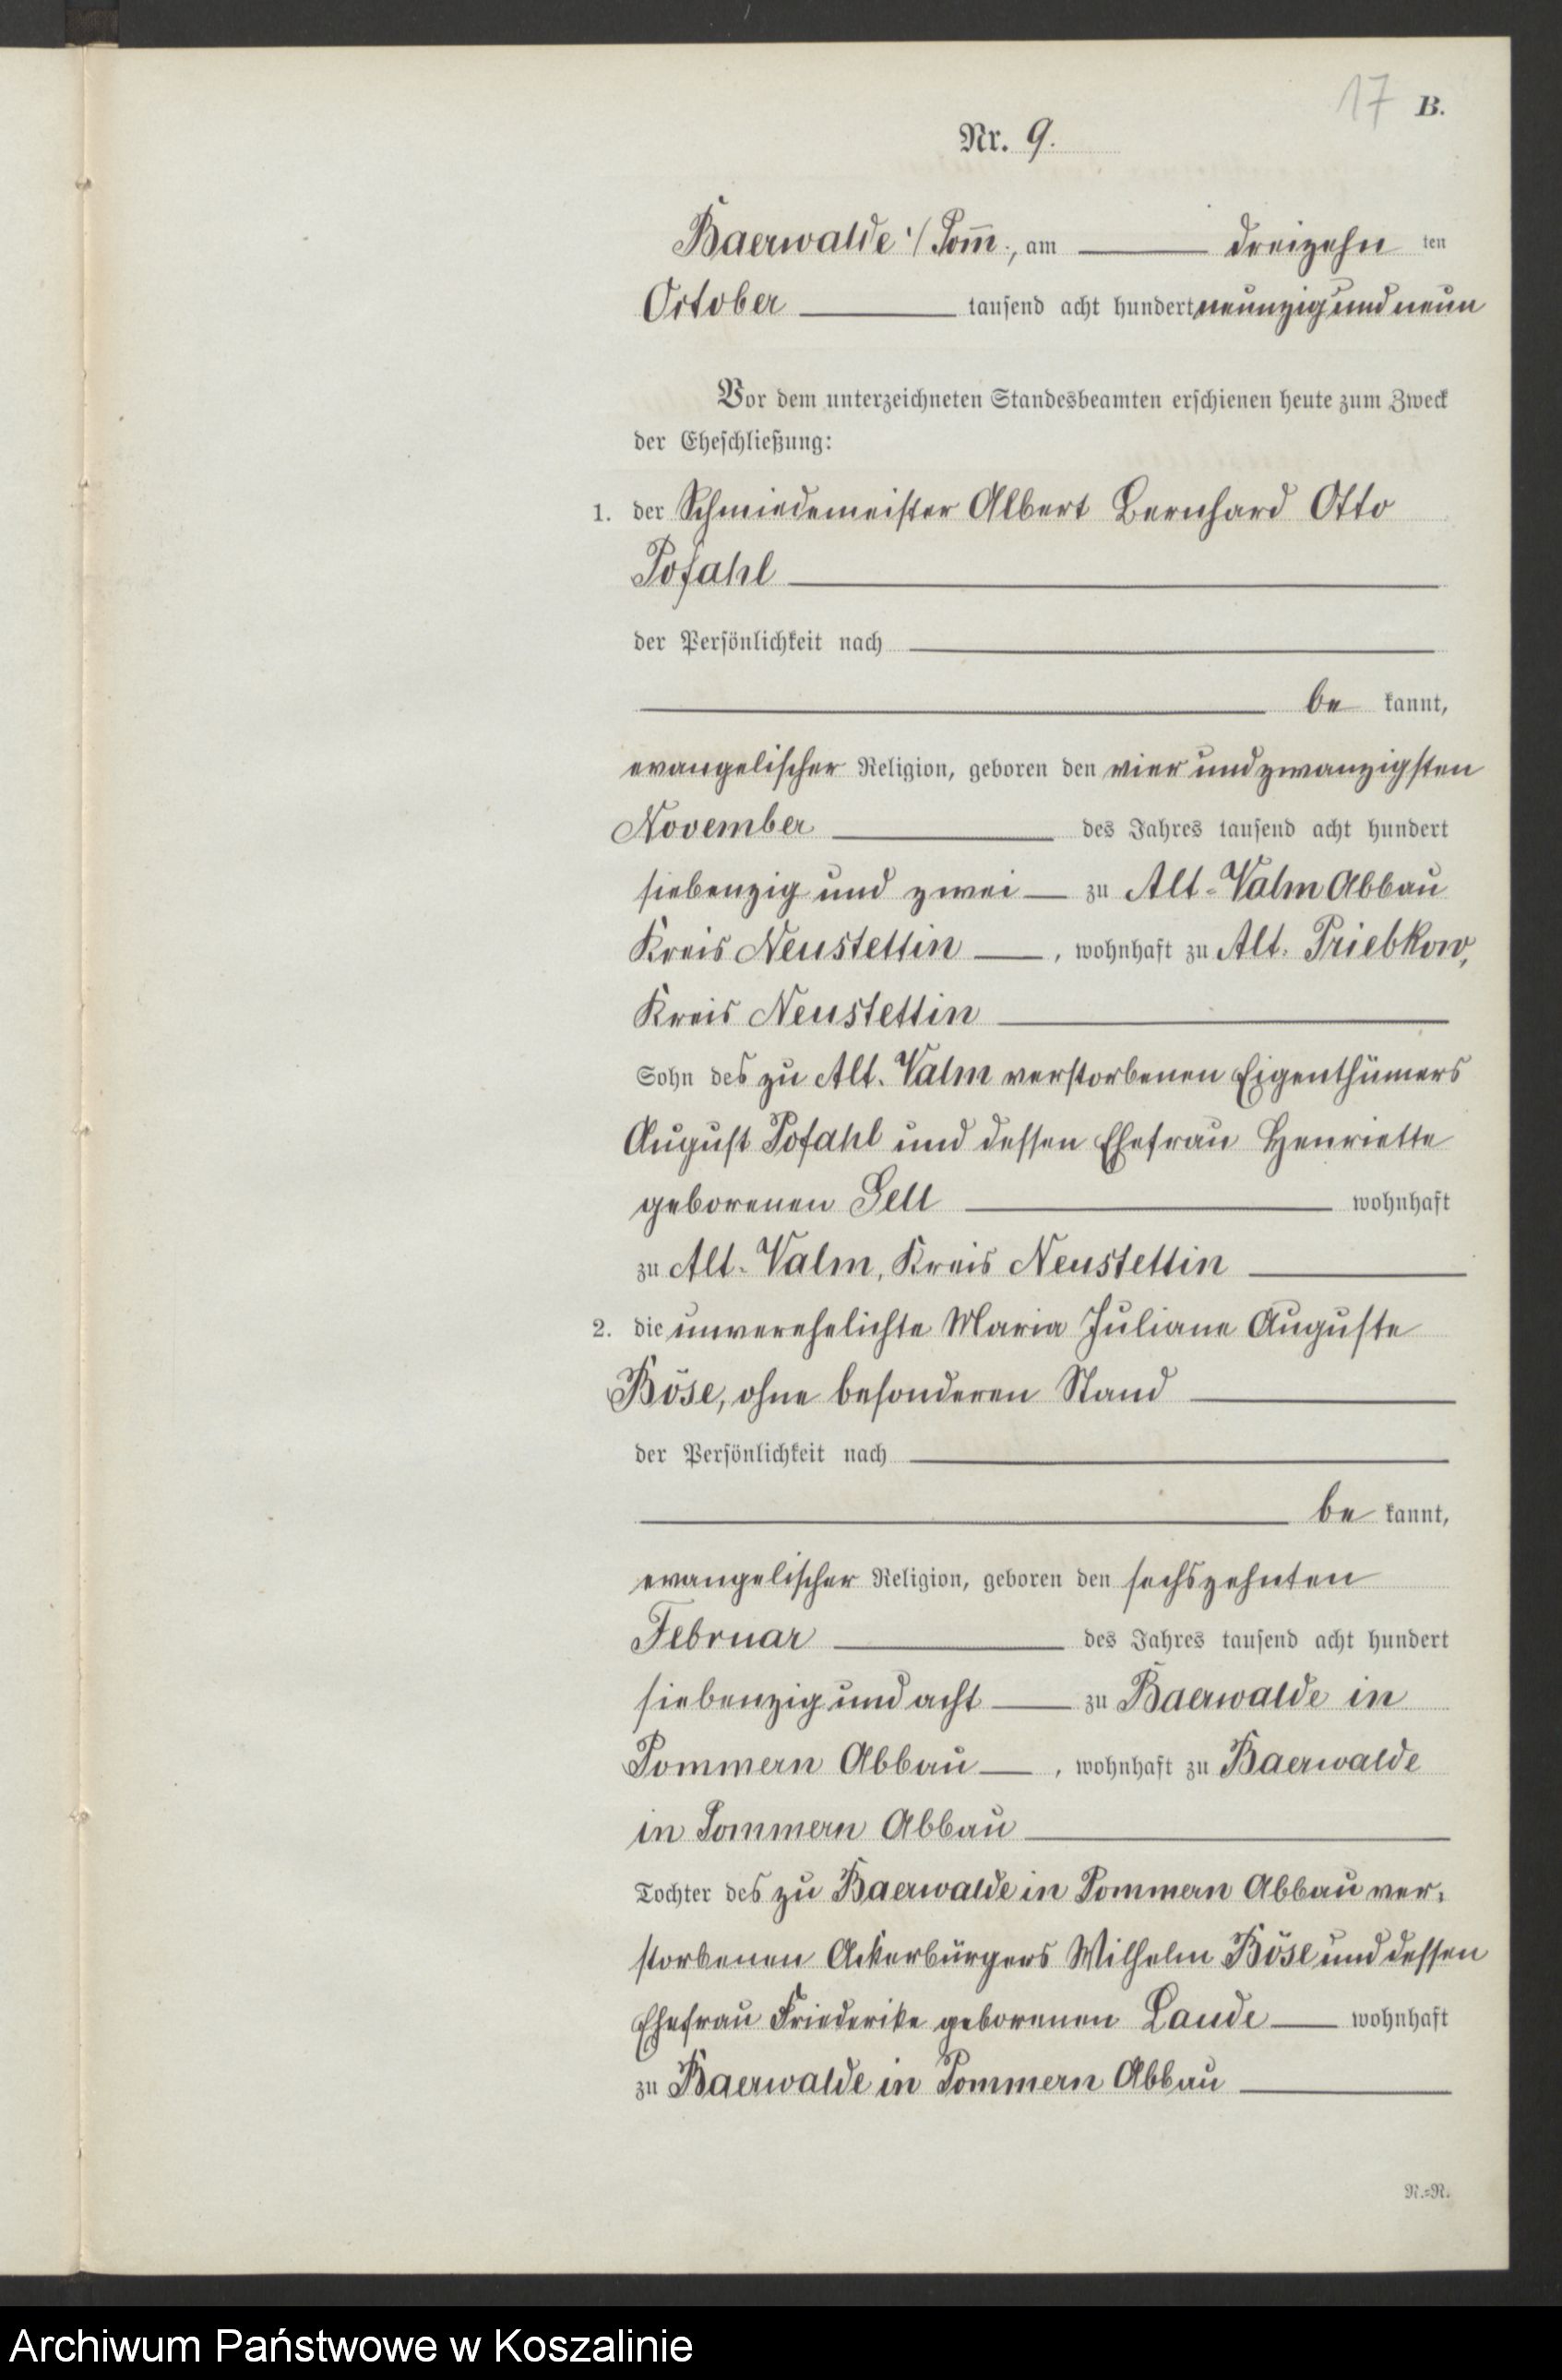 17 B.
Nr. 9.
Baerwalde i/ Pom̄., am dreizehn ten
October tausend acht hundert neunzig und neun
Vor dem unterzeichneten Standesbeamten erschienen heute zum Zweck
der Eheschließung:
1. der Schmiedemeister Albert Bernhard Otto
Pofahl
der Persönlichkeit nach
be kannt,
evangelischer Religion, geboren den vier und zwanzigsten
November des Jahres tausend acht hundert
siebenzig und zwei zu Alt-Valm Abbau
Kreis Neustettin, wohnhaft zu Alt-Priebkow,
Kreis Neustettin
Sohn des zu Alt-Valm verstorbenen Eigenthümers
August Pofahl und dessen Ehefrau Henriette
geborenen Gell wohnhaft
zu Alt-Valm, Kreis Neustettin
2. die unverehelichte Maria Juliane Auguste
Böse, ohne besonderen Stand
der Persönlichkeit nach
be kannt,
evangelischer Religion, geboren den sechszehnten
Februar des Jahres tausend acht hundert
siebenzig und acht zu Baerwalde in
Pommern Abbau, wohnhaft zu Baerwalde
in Pommern Abbau
Tochter des zu Baerwalde in Pommern Abbau ver-
storbenen Ackerbürgers Wilhelm Böse und dessen
Ehefrau Friederike geborenen Laude wohnhaft
zu Baerwalde in Pommern Abbau
R.=R.
Archiwum Państwowe w Koszalinie